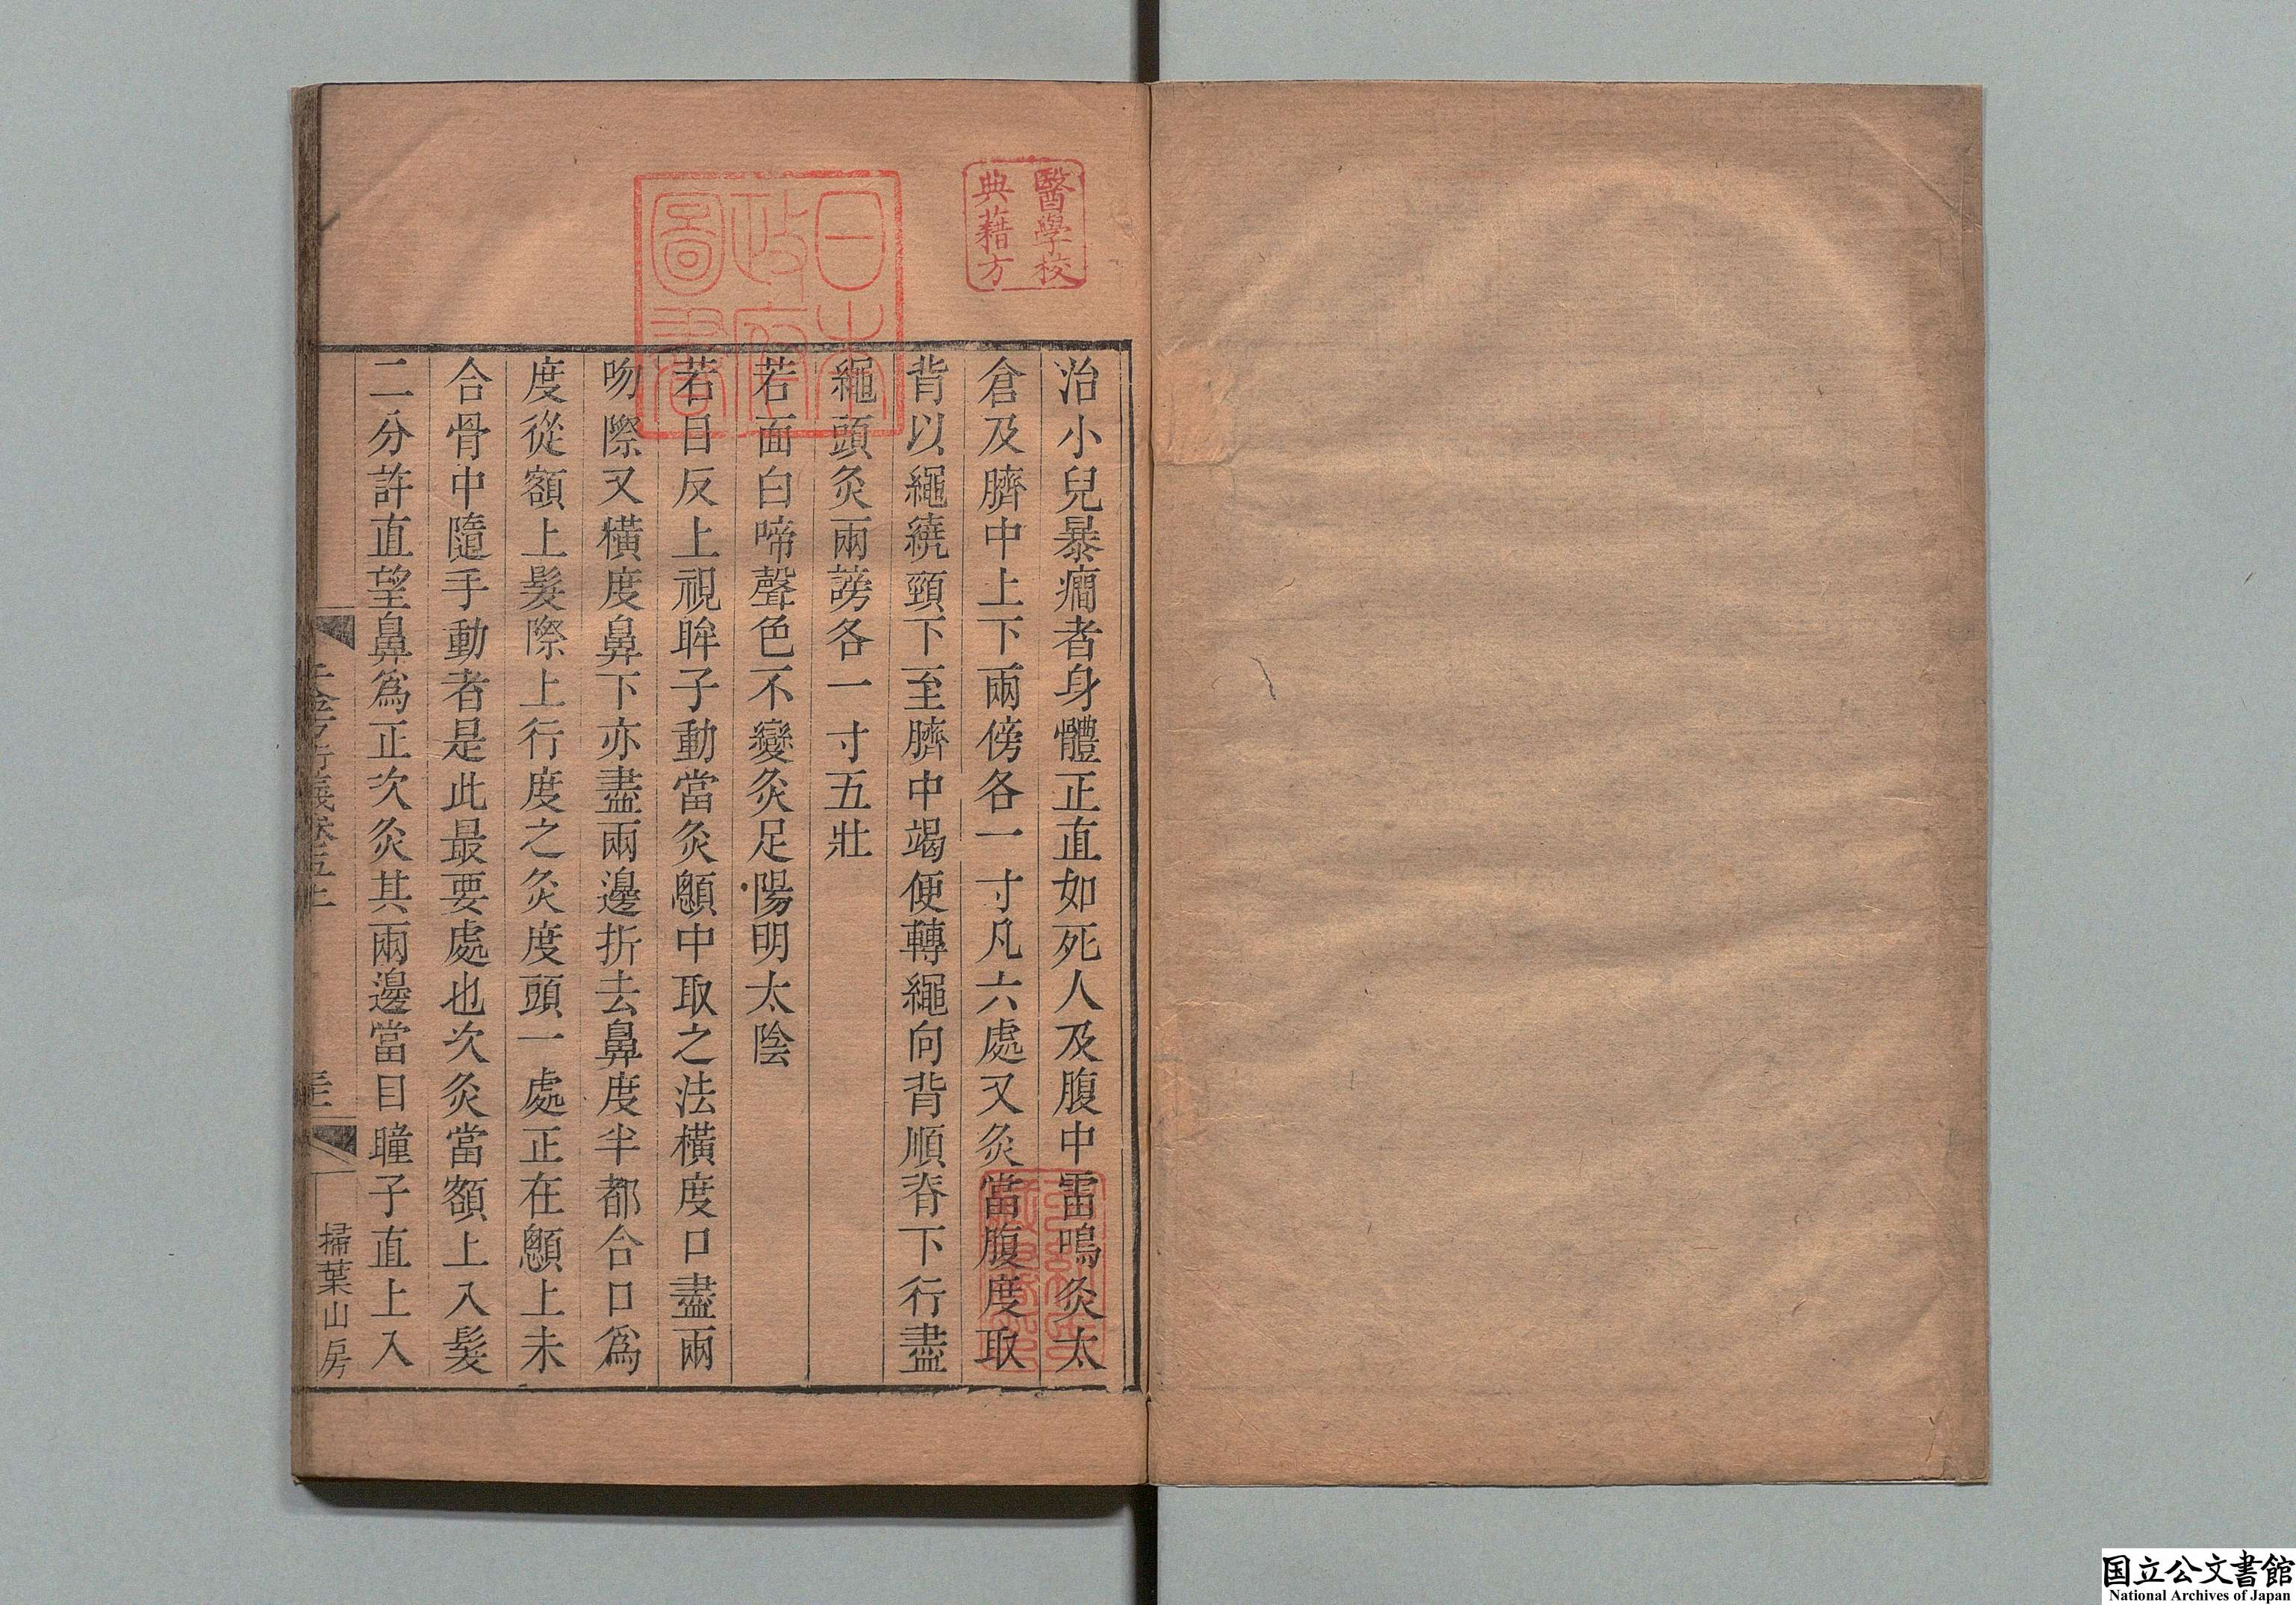 醫學校
典藉方
日本
政府
圖書
治小兒暴癎者身體正直如死人及腹中雷鳴灸太
倉及臍中上下兩傍各一寸凡六處又灸當腹度取
背以繩繞頸下至臍中竭便轉繩向背順脊下行盡
繩頭灸兩謗各一寸五壯
若面白啼聲色不變灸足陽明太陰
若目反上視眸子動當灸顖中取之法橫度口盡兩
吻際又橫度鼻下亦盡兩邊折去鼻度半都合口爲
度從額上髮際上行度之灸度頭一處正在顖上未
合骨中隨手動者是此最要處也次灸當額上入髮
二分許直望鼻爲正次灸其兩邊當目瞳子直上入
掃葉山房
国立公文書館
National Archives of Japan